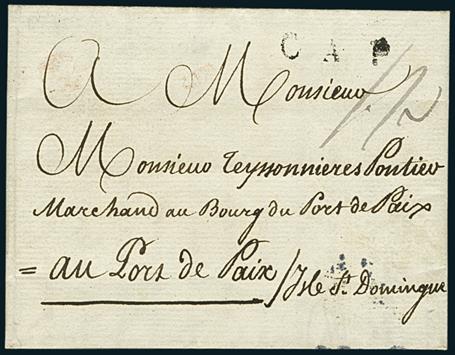 CAP
A Monsieur
Monsieur Teyssonnieres Pontier
Marchand au Bourg du Port de Paix
= au Port de Paix / Isle St. Domingue